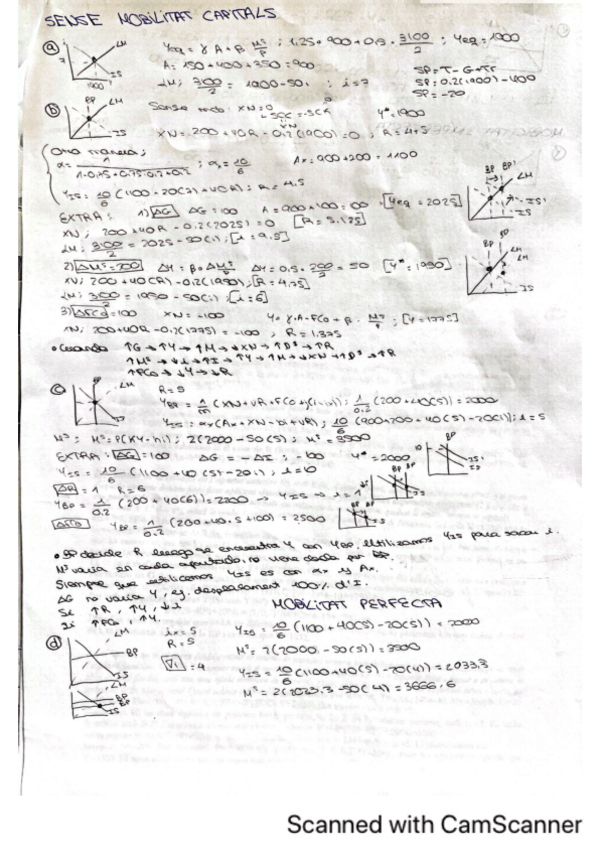 SENSE MOBILITAT CAPITALS
(a) LM IS 7 1900 Yeq = γ A + β M^s/P ; 1.25 · 900 + 0.5 · 3100/2 ; Yeq = 1900
A = 150 + 400 + 350 = 900
SP = T - G + Tr
LM; 3100/2 = 1900 - 50i ; i = 7
SP = 0.2(1900) - 400
SP = -20
(b) BP LM IS XN = 0 Y* = 1900
XN; 200 + 40R - 0.2(1900) = 0 ; R = 4.5
Otra manera;
αx = 10/6 Ax = 900 + 200 = 1100
Y_IS = 10/6 (1100 - 20(7) + 40R) ; R = 4.5
BP BP' LM IS' IS
EXTRA: 1) ΔG ΔG = 100 [Yeq = 2025]
XN; 200 + 40R - 0.2(2025) = 0 [R = 5.125]
LM; 3100/2 = 2025 - 50(i) ; [i = 9.5]
2) ΔM^s = 200 ΔY = β · ΔM^s/P ΔY = 0.5 · 200/2 = 50 [Y* = 1950]
XN; 200 + 40(R) - 0.2(1950) ; [R = 4.75]
3) ΔFCO = 100 XN = -100 [Y = 1775]
XN; 200 + 40R - 0.2(1775) = -100 ; R = 1.375
• Cuando ↑G → ↑Y → ↑M → ↓XN → ↑D^s → ↑R
↑M^s → ↓i → ↑I → ↑Y → ↑M → ↓XN → ↑D^s → ↑R
↑FCO → ↓Y → ↓R
(c) LM R = 5
Y_BP = 1/m (XN + vR + FCO + j(i - i*)) ; 1/0.2 (200 + 40(5)) = 2000
10/6 (900 + 200 + 40(5) - 20(i)) ; i = 5
2(2000 - 50(5)) ; M^s = 3500
EXTRA: ΔG = 100 ΔG = -ΔI ; -100 Y* = 2000
Y_IS = 10/6 (1100 + 40(5) - 20i) ; i = 10
ΔR = 1 R = 6
Y_BP = 1/0.2 (200 + 40(6)) = 2200 → Y_IS → i = 1
ΔFCO Y_BP = 1/0.2 (200 + 40 · 5 + 100) = 2500
• BP decide R luego se encuentra Y con Y_BP, utilizamos Y_IS para sacar i.
M^s varía en cada apartado, no viene dada por BP.
Siempre que utilicemos Y_IS es con αx y Ax.
ΔG no varía Y, ej. desplasament 100% d'I.
Si ↑R, ↑Y, ↓i
Si ↑FCO, ↑Y.
MOBILITAT PERFECTA
(d) LM BP IS i* = 5 Y_IS = 10/6 (1100 + 40(5) - 20(5)) = 2000
R = 5
M^s = 2(2000 - 50(5)) = 3500
∇i = 4 Y_IS = 10/6 (1100 + 40(5) - 20(4)) = 2033.3
LM BP BP IS M^s = 2(2033.3 - 50(4)) = 3666.6
Scanned with CamScanner